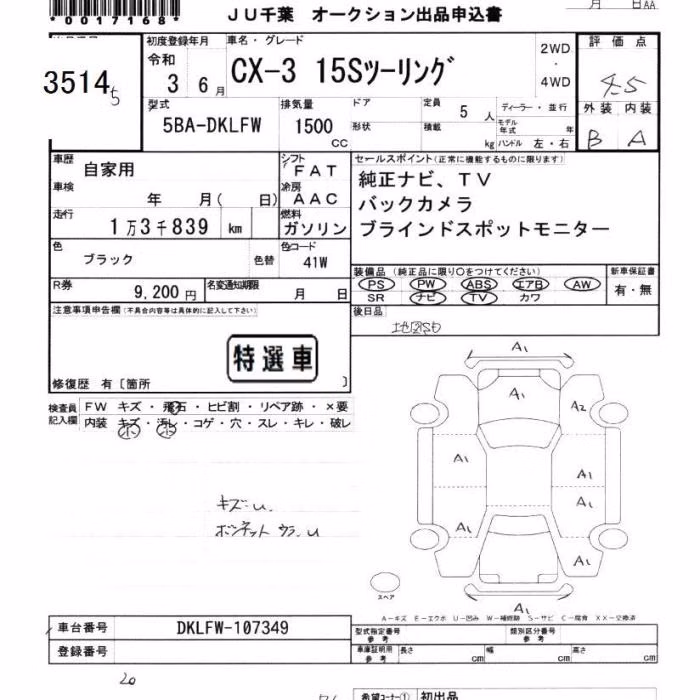 *0017168*
ＪＵ千葉 オークション出品申込書
月 日AA
3514
5
初度登録年月
令和
3 6月
車名・グレード
CX-3 15Sﾂｰﾘﾝｸﾞ
2WD
・
4WD
評価点
4.5
外装 内装
B A
型式
5BA-DKLFW
排気量
1500
CC
ドア
形状
定員
5 人
積載
kg
ディーラー・並行
モデル年式 年
ハンドル 左・右
車歴
自家用
車検
年 月( 日)
走行
1万3千839 km
シフト
FAT
冷房
AAC
燃料
ガソリン
セールスポイント(正常に機能するものに限ります)
純正ナビ、ＴＶ
バックカメラ
ブラインドスポットモニター
色
ブラック
色替
色コード
41W
R券
9,200円
名変通知期限
月 日
装備品 (純正品に限り○をつけてください)
PS PW ABS エアB AW
SR ナビ TV カワ
新車保証書
有・無
後日品
注意事項申告欄(不具合内容等は具体的に記入して下さい)
特選車
修復歴 有〔箇所 〕
検査員記入欄
ＦＷ キズ・飛石・ヒビ割・リペア跡・×要
内装 キズ・汚レ・コゲ・穴・スレ・キレ・破レ
小 小
キズ・U
ボンネット ウラ・U
A1
A1
A2
A1
A1
A1
A1
A1
A1
スペア
A－キズ E－エクボ U－凹み W－補修跡 S－サビ C－腐食 XX－交換済
車台番号
DKLFW-107349
登録番号
型式指定番号
参考
類別区分番号
参考
車庫証明用
参考
長さ cm
幅 cm
高さ cm
20
希望コーナー① 初出品